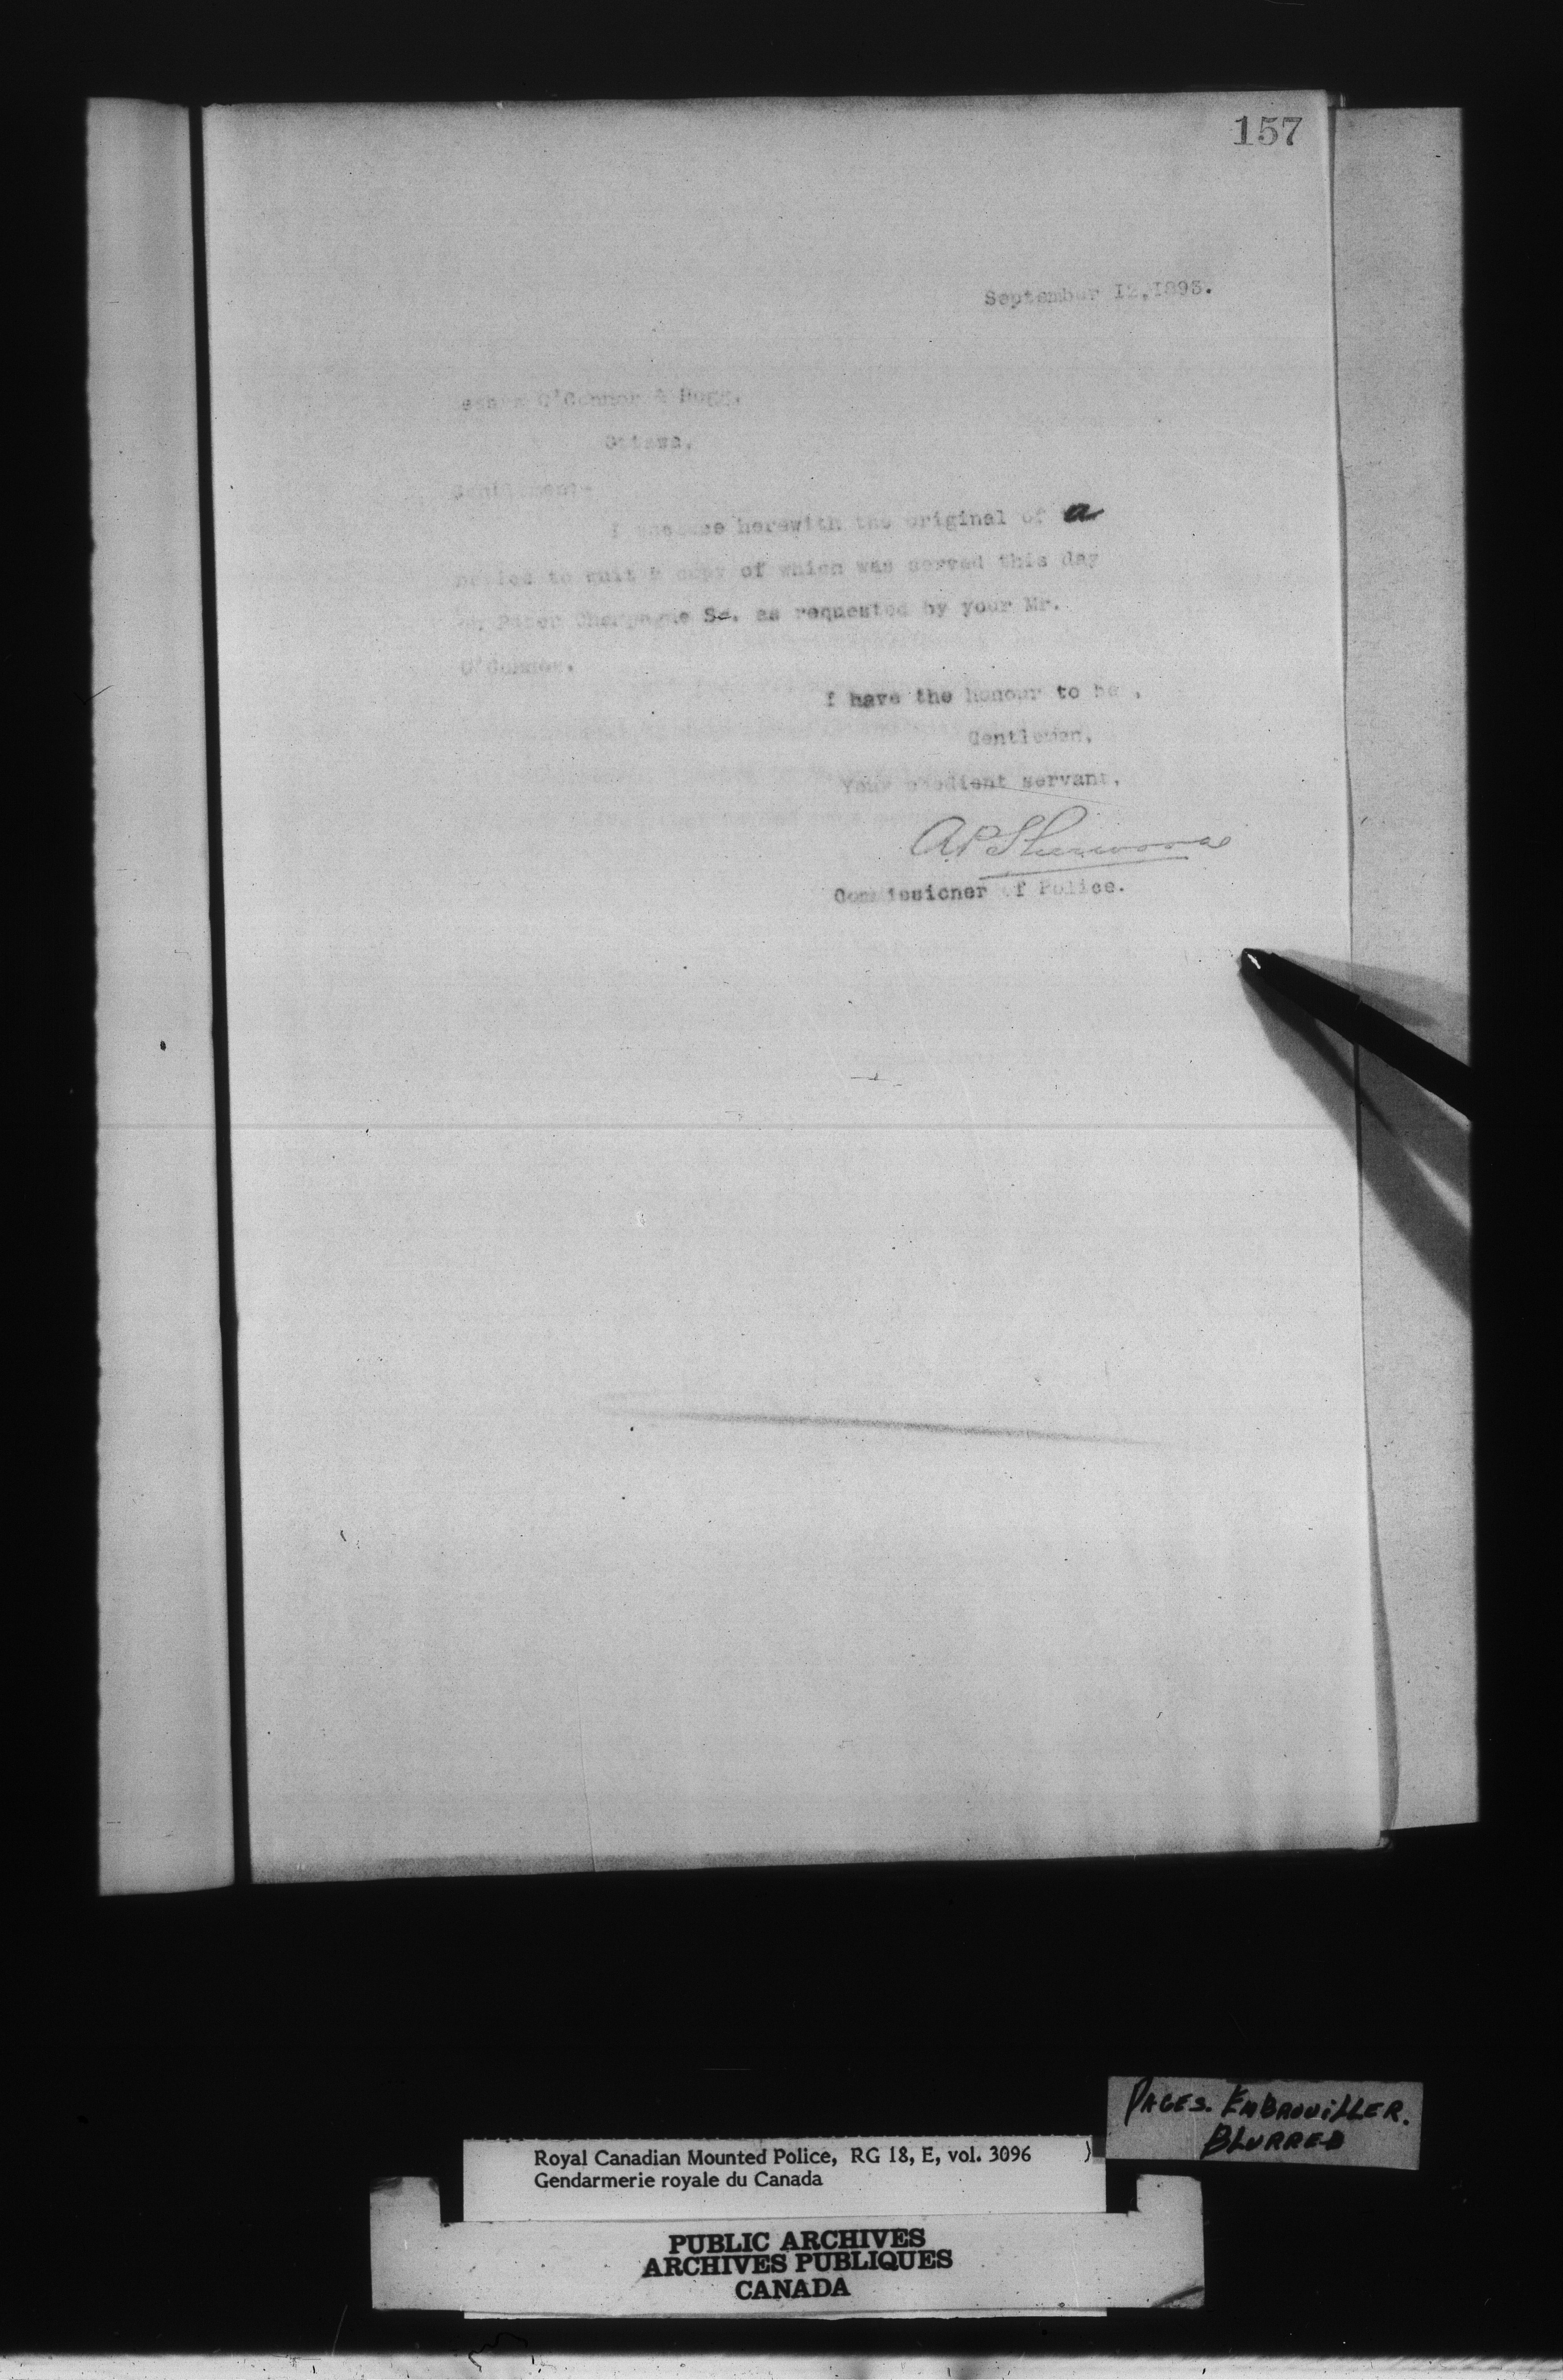 157
September 12, 1893.
O'Connor & Hogg,
Ottawa.
Gentlemen:-
I enclose herewith the original of a
notice to quit a copy of which was served this day
on Peter Champagne Sr. as requested by your Mr.
O'Connor.
I have the honour to be,
Gentlemen,
Your obedient servant,
A.P. Sherwood
Commissioner of Police.
PAGES. EMBROUILLER.
BLURRED
Royal Canadian Mounted Police, RG 18, E, vol. 3096
Gendarmerie royale du Canada
PUBLIC ARCHIVES
ARCHIVES PUBLIQUES
CANADA